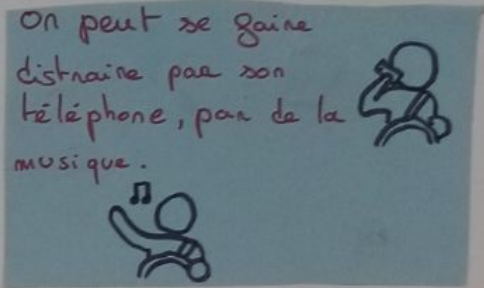 On peut se faire
distraire par son
téléphone, par de la
musique.